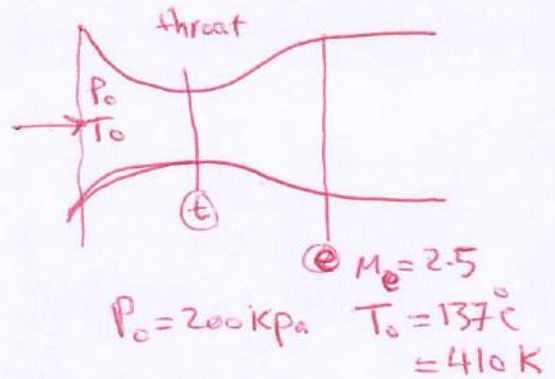 throat
P₀
T₀
t
e Mₑ = 2.5
P₀ = 200 kpa T₀ = 137°c
= 410 K